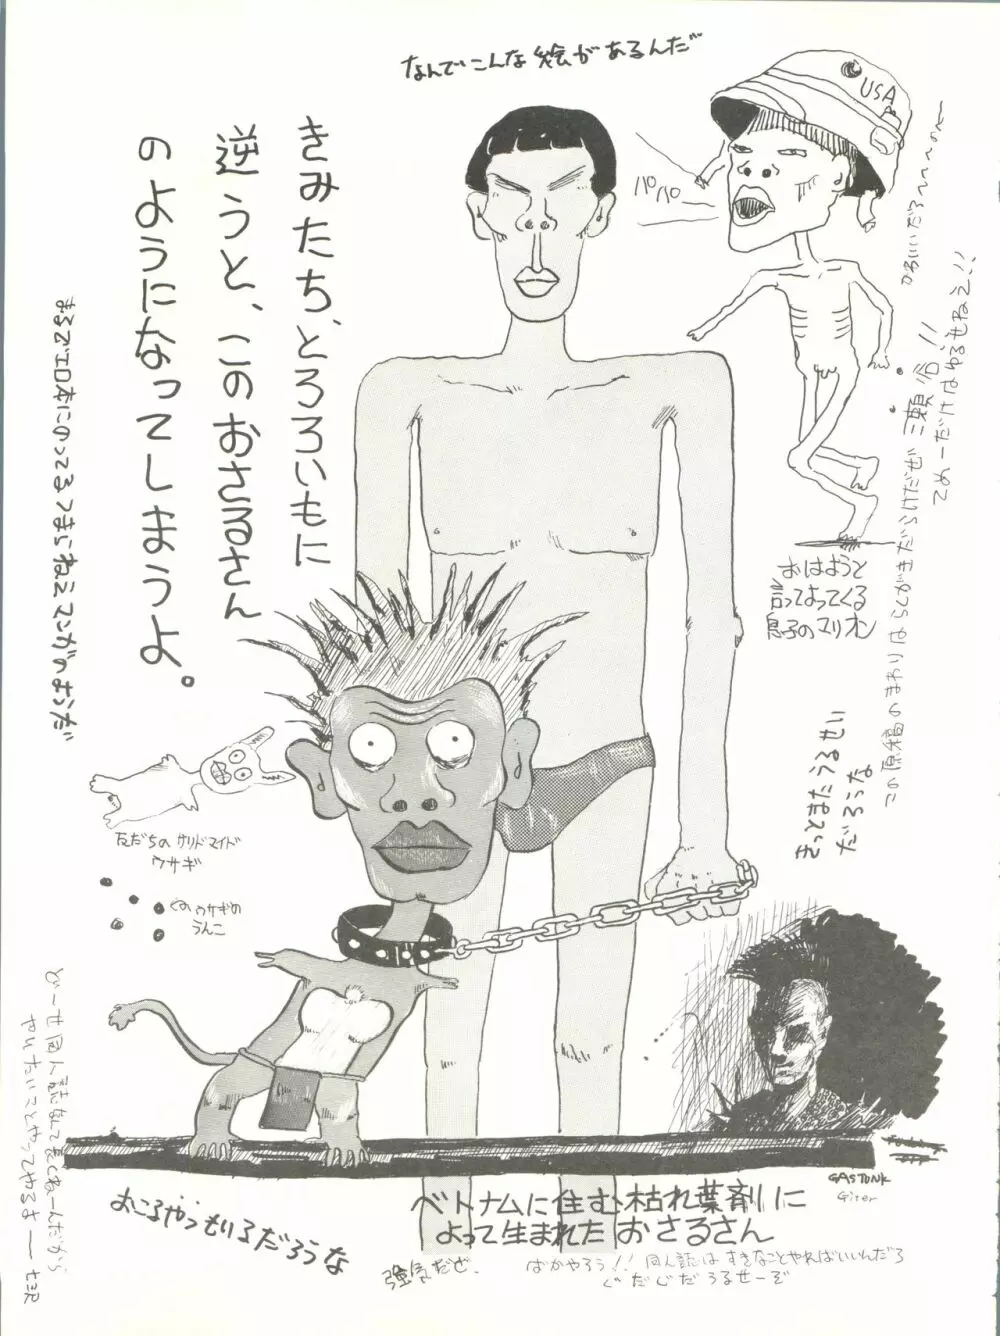 なんでこんな絵があるんだ
USA
パパ
きみたち、とろろいもに
逆うと、このおさるさん
のようになってしまうよ。
まるでエロ本にのってるつまらねえマンガのようだ
かわいいだろへへへ
てめーだけはゆるせねえ!!
この原稿のまわりはらくがきだらけだぜ 三瀬 !!
おはようと
言ってよってくる
息子のマリオン
きっとまたうるせい
だろうな
友だちの サリドマイド
ウサギ
そのウサギの
うんこ
どーせ同人誌なんてきくねーんだから
やりたいことやってやるさ——
GASTUNK
Giter
おこるやつもいるだろうな
ベトナムに住む枯れ葉剤に
よって生まれた おさるさん
強気だぜ.
ばかやろう!! 同人誌は すきなことやればいいんだろ
ぐだぐだうるせーぞ